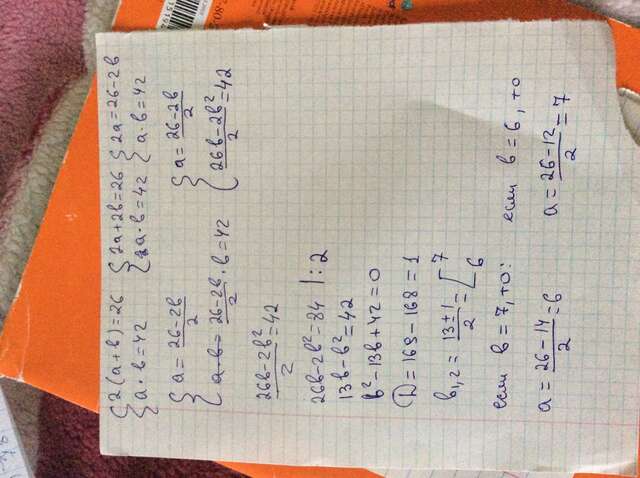 {2(a+b)=26 {2a+2b=26 {2a=26-2b
{a·b=42 {a·b=42 {a·b=42
{a=26-2b/2 {a=26-2b/2
{a·b=26-2b/2·b=42 {26b-2b²/2=42
26b-2b²/2=42
26b-2b²=84 |:2
13b-b²=42
b²-13b+42=0
D=169-168=1
b1,2=13±1/2=[7 6
если b=7, то: если b=6, то
a=26-14/2=6 a=26-12/2=7